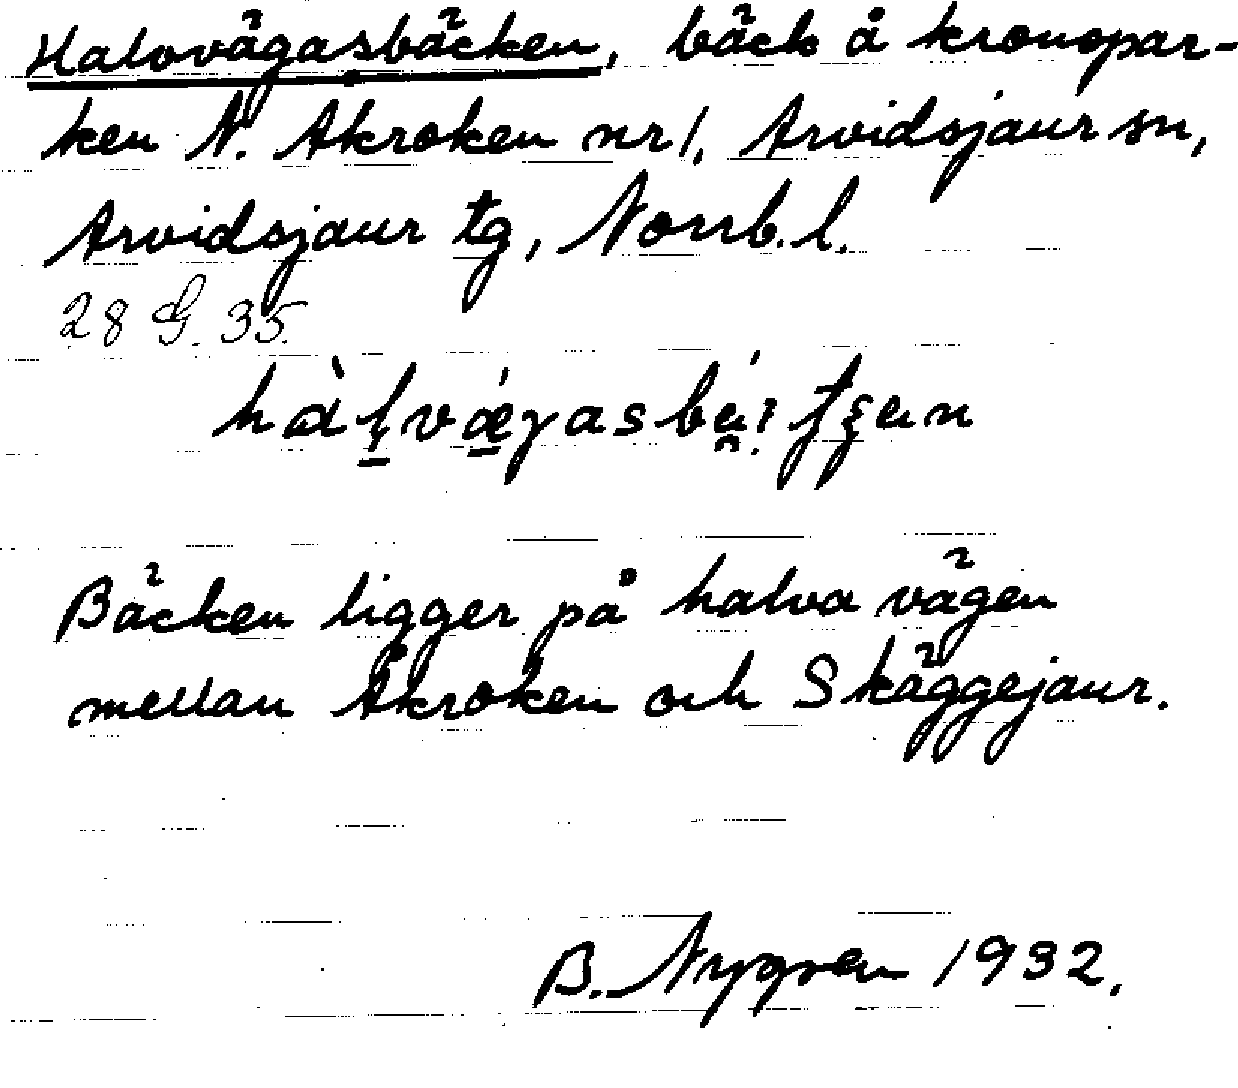 Halvvägasbäcken, bäck å kronopar-
ken N. Åkroken nr 1, Arvidsjaur sn,
Arvidsjaur tg, Norrb. l.
28 G. 35.
Bäcken ligger på halva vägen
mellan Åkroken och Skäggejaur.
B. Nygren 1932.